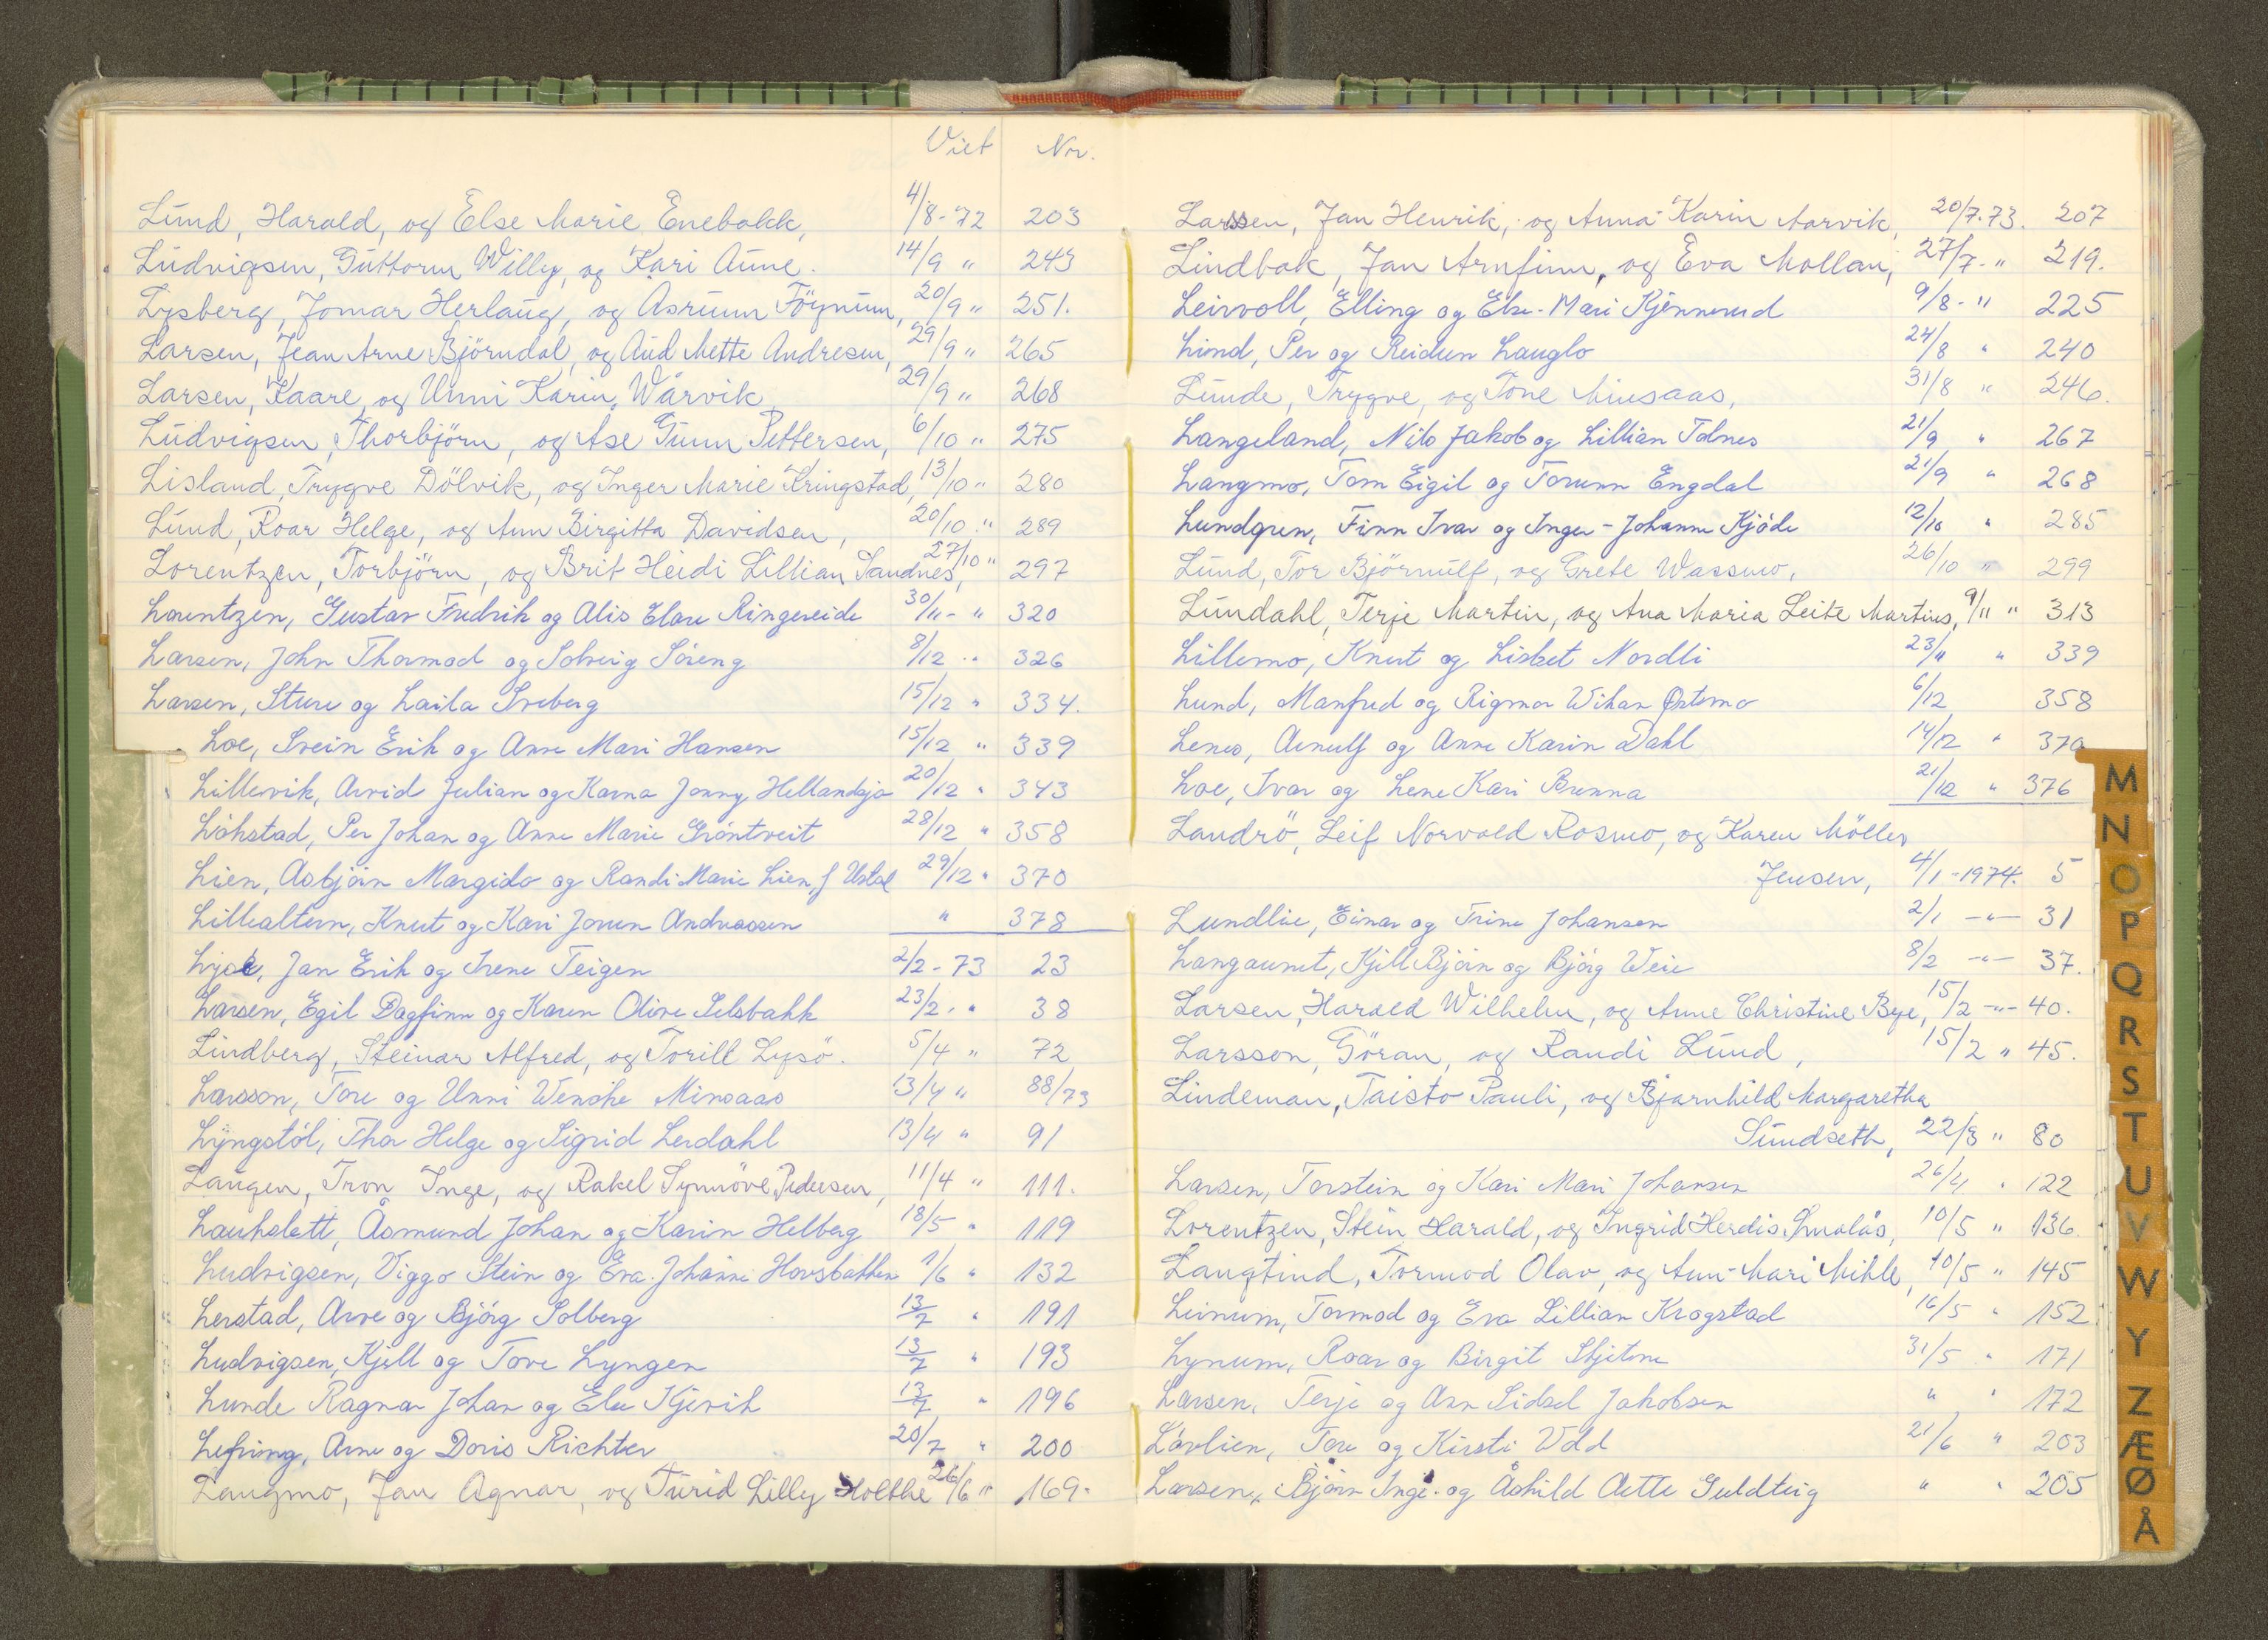 Viet Nr.
Lund, Harald, og Else Marie Enebakk, 4/8-72 203
Ludvigsen, Guttorm Willy, og Kari Aune. 14/9 " 243
Lysberg, Jomar Herlaug, og Asrunn Föynum, 20/9 " 251.
Larsen, Jean Arne Björndal, og Aud Mette Andresen, 29/9 " 265
Larsen, Kaare, og Unni Karin Wårvik 29/9 " 268
Ludvigsen, Thorbjörn, og Åse Gunn Pettersen, 6/10 " 275
Lisland, Trygve Dölvik, og Inger Marie Kringstad, 13/10 " 280
Lund, Roar Helge, og Ann Birgitta Davidsen, 20/10 " 289
Lorentzen, Torbjörn, og Brit Heidi Lillian Sandnes, 27/10 " 297
Lorentzen, Gustav Fredrik og Alis Elare Ringereide 30/11- " 320
Larsen, John Thormod og Solveig Söreng 8/12 " 326
Larsen, Sture og Laila Sveberg 15/12 " 334.
Loe, Svein Erik og Anne Mari Hansen 15/12 " 339
Lillevik, Arvid Julian og Karna Jonny Hellandsjø 20/12 " 343
Løkstad, Per Johan og Anne Marie Gröntveit 28/12 " 358
Lien, Asbjörn Margido og Randi Marie Lien, f Ustad 29/12 " 370
Lillealtern, Knut og Kari Jorun Andreassen " 378
Lysø, Jan Erik og Irene Teigen 2/2-73 23
Larsen, Egil Dagfinn og Karen Olive Selsbakk 23/2 " 38
Lindberg, Steinar Alfred, og Torill Lysö. 5/4 " 72
Larsson, Tore og Unni Wenche Minsaas 13/4 " 88/73
Lyngstöl, Thor Helge og Sigrid Lerdahl 13/4 " 91
Langen, Tron Inge, og Rakel Synnöve Pedersen, 11/4 " 111.
Laukslett, Åsmund Johan og Karin Helberg 18/5 " 119
Ludvigsen, Viggo Stein og Eva Johanne Hovsbakken 1/6 " 132
Lerstad, Arve og Bjørg Solberg 13/7 " 191
Ludvigsen, Kjell og Tove Lyngen 13/7 " 193
Lunde Ragnar Johan og Else Kjervik 13/7 " 196
Lefring, Arne og Doris Richter 20/7 " 200
Langmo, Jan Agnar, og Turid Lilly Holthe 26/6 " 169.
Larssen, Jan Henrik, og Anna Karin Aarvik, 20/7.73. 207
Lindbak, Jan Arnfinn, og Eva Mollan, 27/7-" 219.
Leirvoll, Elling og Else-Mari Kjennerud 9/8-" 225
Lund, Per og Reidun Lauglo 24/8 " 240
Lunde, Trygve, og Tone Minsaas, 31/8 " 246.
Langeland, Nils Jakob og Lillian Tolnes 21/9 " 267
Langmo, Tom Eigil og Torunn Engdal 21/9 " 268
Lundgren, Finn Ivar og Inger-Johanne Kjöde 12/10 " 285
Lund, Tor Björnulf, og Grete Wassmo, 26/10 " 299
Lundahl, Terje Martin, og Ana Maria Leite Martins, 9/11 " 313
Lillemo, Knut og Lisbet Nordli 23/11 " 339
Lund, Manfred og Rigmor Wihan Østmo 6/12 358
Lenes, Arnulf og Anne Karin Dahl 14/12 " 370
Loe, Ivar og Lene Kari Brenna 21/12 " 376
Landrö, Leif Norvald Rosmo, og Karen Möller
Jensen, 4/1-1974. 5
Lundlie, Einar og Trine Johansen 2/1 -"- 31
Langaunet, Kjell Bjørn og Bjørg Weie 8/2 -"- 37.
Larsen, Harald Wilhelm, og Anne Christine Bye, 15/2 -"- 40.
Larsson, Göran, og Randi Lund, 15/2 " 45.
Lindeman, Taisto Pauli, og Bjarnhild Margaretha
Sundseth, 22/3 " 80
Larsen, Torstein og Kari Mari Johansen 26/4 " 122
Lorentzen, Stein Harald, og Ingrid Herdis Smalås, 10/5 " 136.
Langtind, Tormod Olav, og Ann-Mari Mihle, 10/5 " 145
Leinum, Tormod og Eva Lillian Krogstad 16/5 " 152
Lynum, Roar og Birgit Skjetne 31/5 " 171
Larsen, Terje og Ann Sidsel Jakobsen " " 172
Løvlien, Tore og Kirsti Vold 21/6 " 203
Larsen, Bjørn Inge og Åshild Aette Guldteig " " 205
M
N
O
P
Q
R
S
T
U
V
W
Y
Z
Æ
Ø
Å